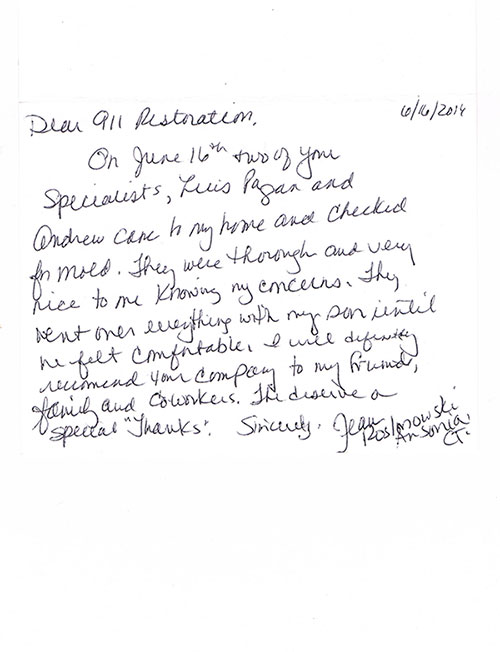 Dear 911 Restoration, 6/16/2014
On June 16th two of your
Specialists, Luis Pagan and
Andrew came to my home and checked
for mold. They were thorough and very
nice to me knowing my concerns. They
went over everything with my son until
he felt comfortable. I will definitely
recommend your company to my friends,
family and coworkers. The deserve a
special "Thanks". Sincerely. Jean
Ansonia,
CT.